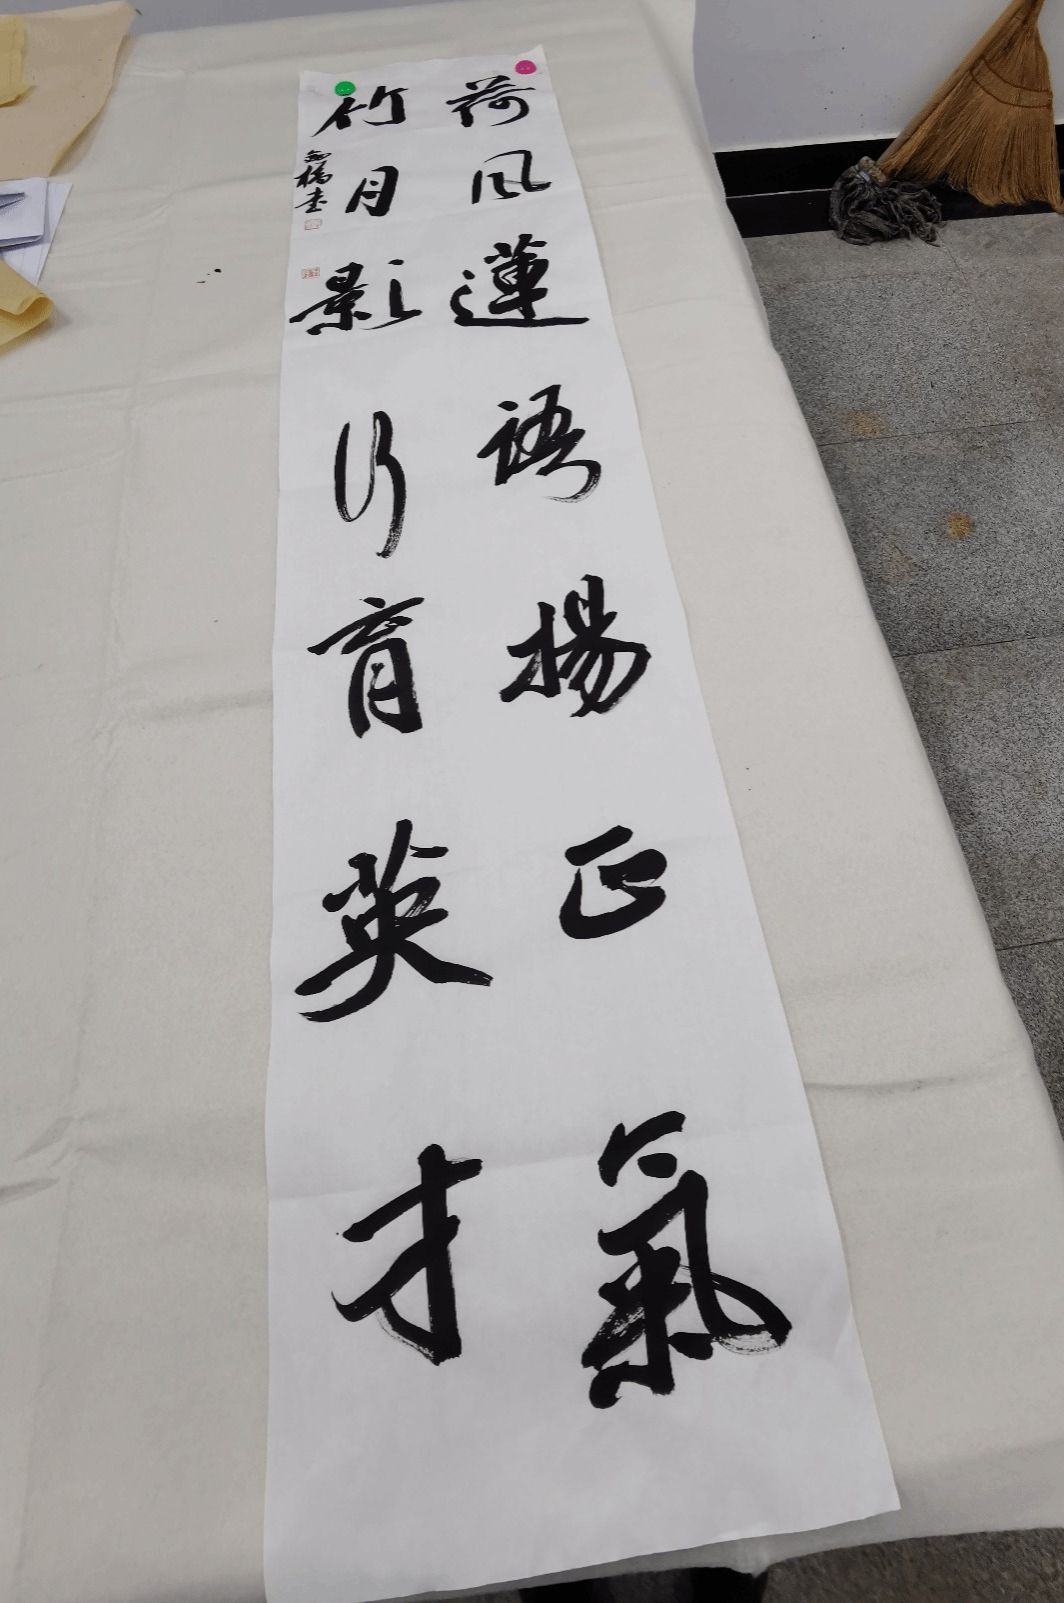 荷风蓮語揚正氣
竹月影行育英才